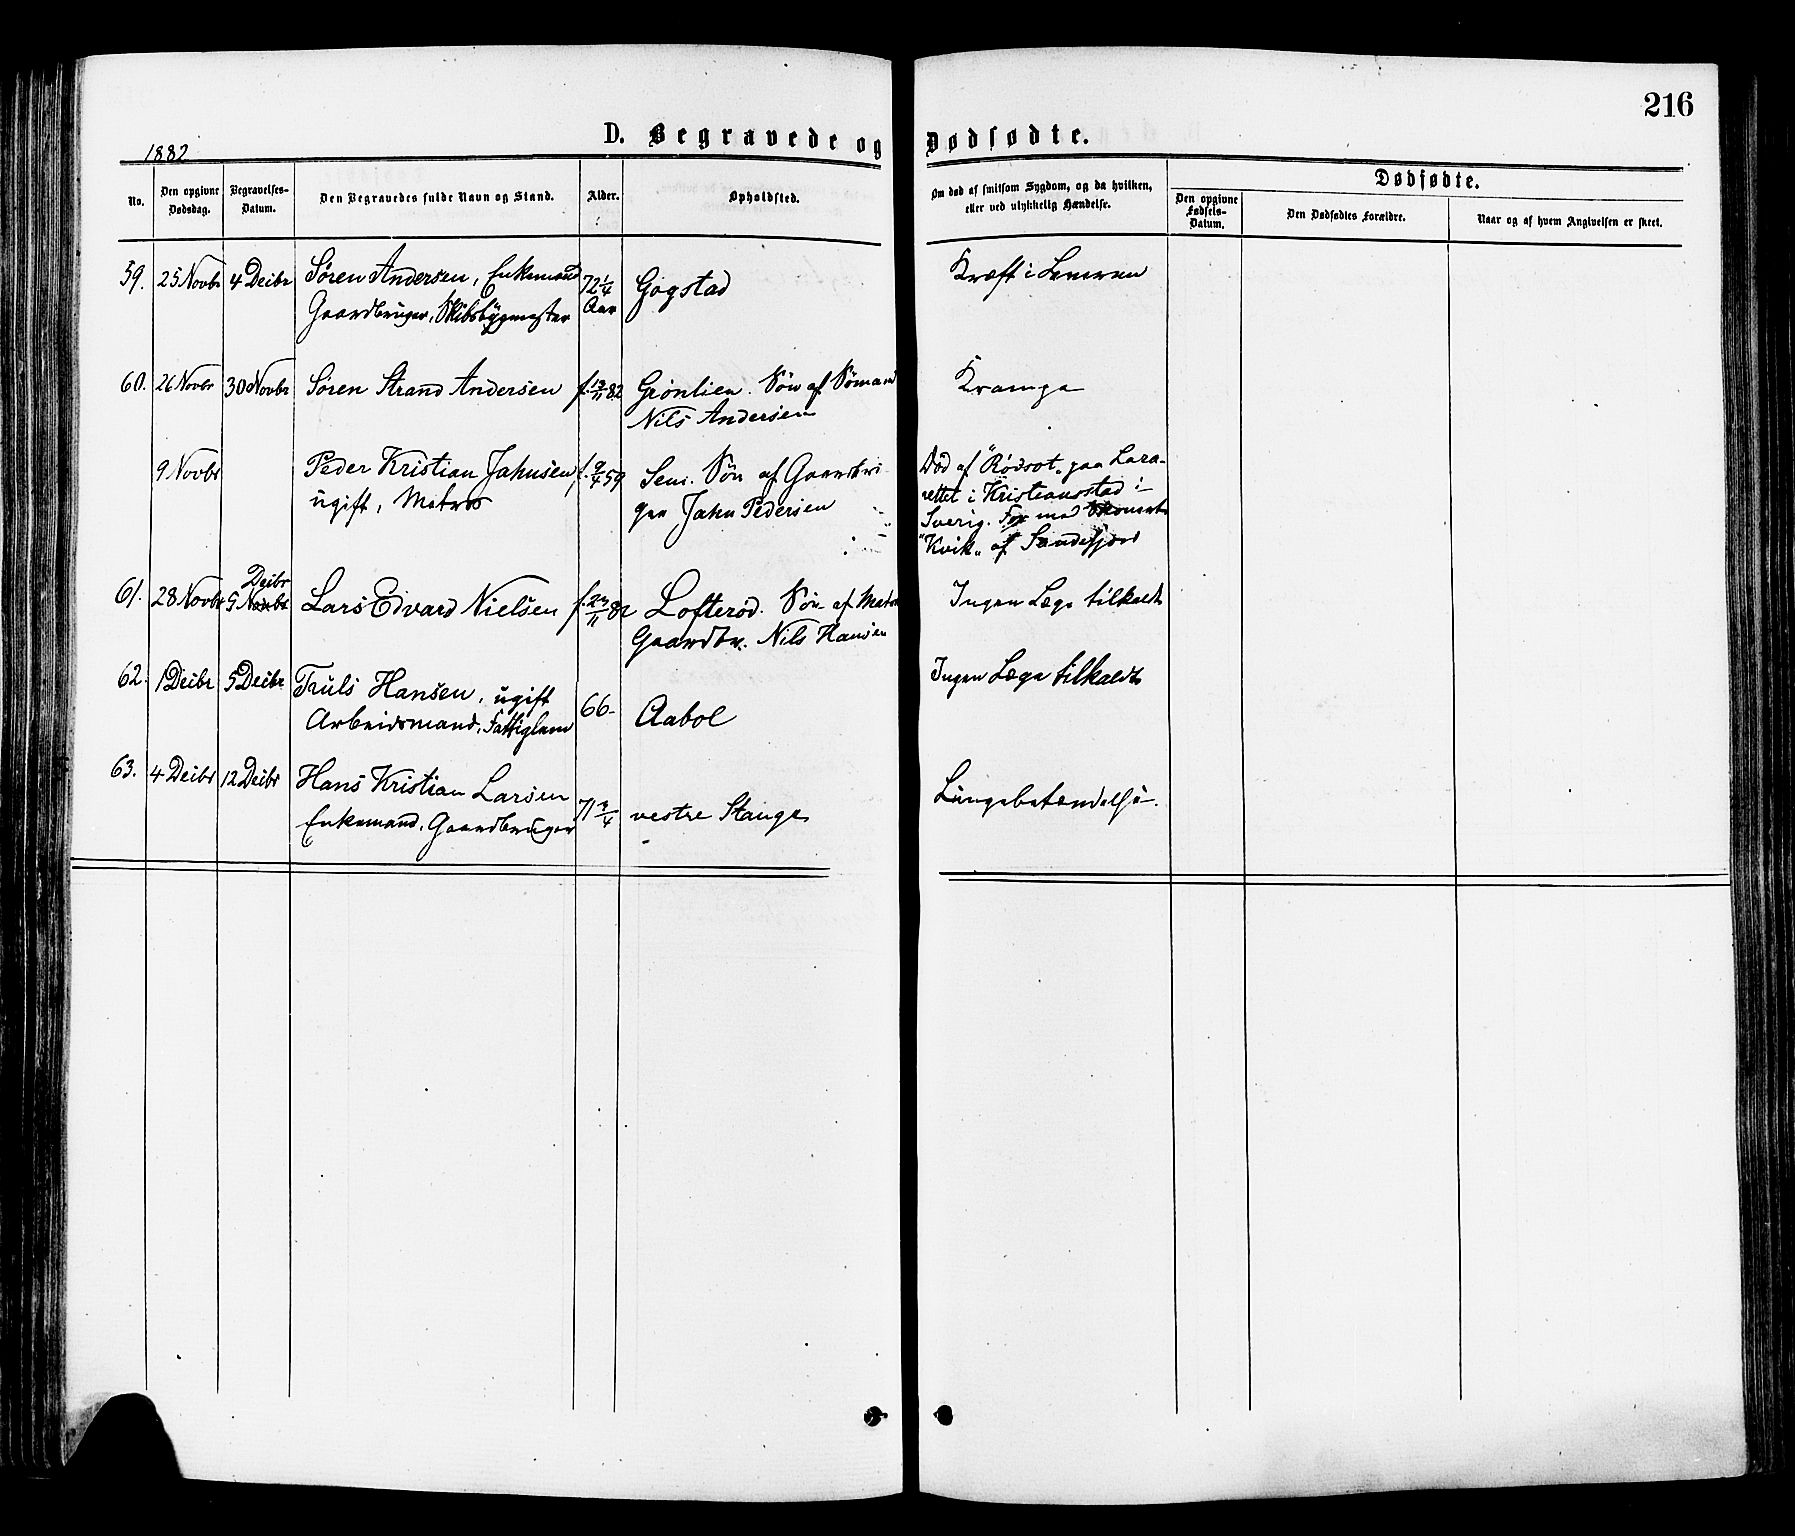 216
D. Begravede og Dødfødte.
1882
No.
Den opgivne Dødsdag.
Begravelses-Datum.
Den Begravedes fulde Navn og Stand.
Alder.
Opholdsted.
Om død af smitsom Sygdom, og da hvilken, eller ved ulykkelig Hændelse.
Dødfødte.
Den opgivne Fødsels-Datum.
Den Dødfødtes Forældre.
Naar og af hvem Angivelsen er skeet.
59. 25 Novbr 4 Decbr Søren Andersen, Enkemand 72 1/4 Gogstad Kræft i Leveren
Gaardbruger, Skibsbygmester Aar
60. 26 Novbr 30 Novbr Søren Strand Andersen f. 19/11 82 Grønlien. Søn af Sømand Krampe
Nils Andersen
9 Novbr Peder Kristian Jahnsen, f. 9/4 59 Sem. Søn af Gaardbru- Død af "Rødsot" paa Laza-
ugift, Matros ger Jahn Pedersen rettet i Kristiansstad i
Sverig. For med
"Kvik" af Sandefjord
Decbr
61. 28 Novbr 5 Novbr Lars Edvard Nielsen f. 23/11 82 Lofterød. Søn af Matros Ingen Læge tilkaldt
Gaardbr. Nils Hansen
62. 1 Decbr 5 Decbr Truls Hansen, ugift 66 Aabol Ingen Læge tilkaldt
Arbeidsmand, Fattiglem
63. 4 Decbr 12 Decbr Hans Kristian Larsen 71 3/4 vestre Stange Lungebetændelse
Enkemand, Gaardbruger